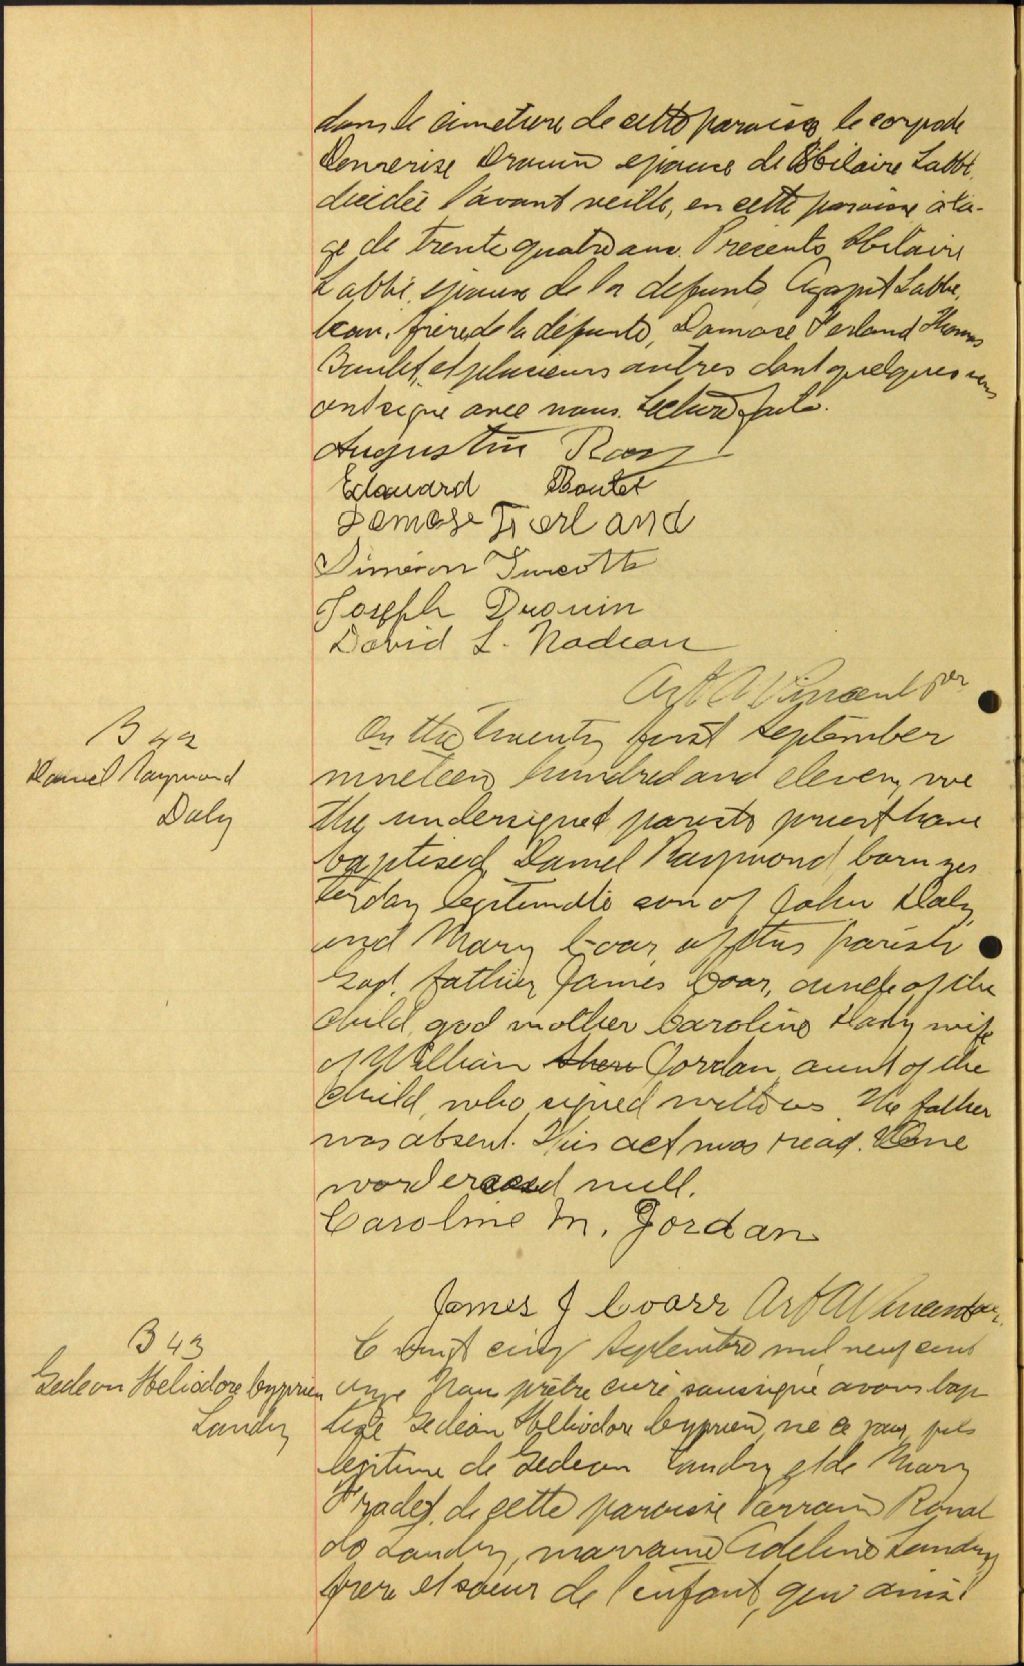 dans le cimetiere de cette paroisse le corps de
Demerise Drouin epouse de Hilaire Labbé,
décidée l'avant veille, en cette paroisse à l'a-
ge de trente quatre ans. Présents Hilaire
Labbé, epoux de la defunte, Agapit Labbé,
beau-frère de la défunte, Damase Ferland Thomas
Boulet, et plusieurs autres dont quelques uns
ont signé avec nous. Lecture faite.
Augustin Roy
Edouard Boutet
Damase Ferland
Siméon Turcotte
Joseph Drouin
David L. Nadeau
Art A Vincent ptr
B 42
Daniel Raymond
Daly
On the twenty first september
nineteen hundred and eleven, we
the undersigned parish priest have
baptised Daniel Raymond, born yes
terday legitimate son of John Daly
and Mary Coar, of this parish
God father, James Coar, uncle of the
child, god mother Caroline Daly wife
of William Jordan, aunt of the
child, who signed with us. The father
was absent. This act was read. One
word erased null.
Caroline M. Jordan
James J Coarr Art A Vincent ptr.
B 43
Gedeon Heliodore Cyprien
Landry
Le vingt cinq Septembre mil neuf cent
onze Nous prêtre curé soussigné avons bap
tisé Gedéon Héliodore Cyprien, né ce jour, fils
legitime de Gedeon Landry et de Mary
Fradet, de cette paroisse Parrain Ronal
do Landry, marraine Adeline Landry
frere et soeur de l'enfant, qui ainsi